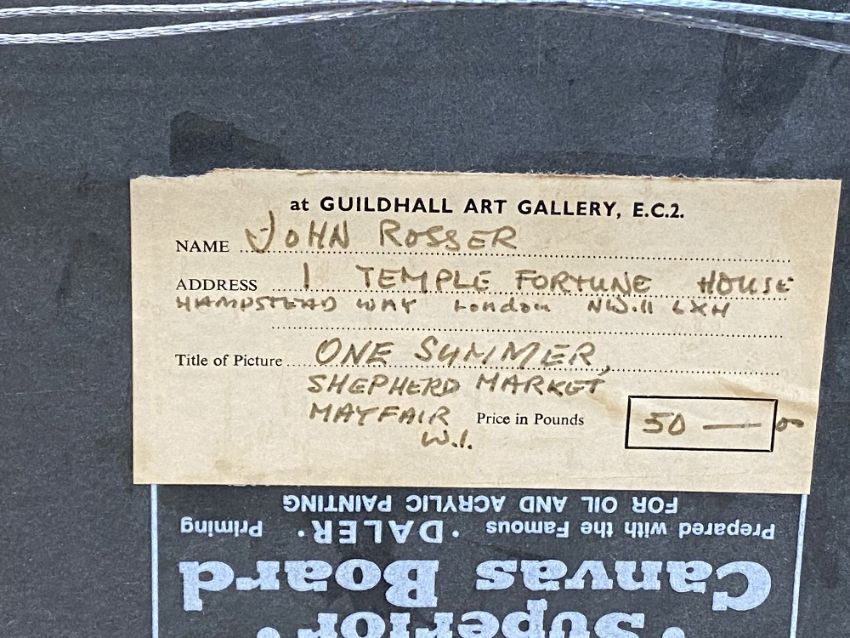 at GUILDHALL ART GALLERY, E.C.2.
NAME JOHN ROSSER
ADDRESS 1 TEMPLE FORTUNE HOUSE
HAMPSTEAD WAY London NW.11 6XH
Title of Picture ONE SUMMER,
SHEPHERD MARKET
MAYFAIR
W.1.
Price in Pounds 50 — 00
FOR OIL AND ACRYLIC PAINTING
Prepared with the Famous · DALER · Priming
Canvas Board
· Superior ·